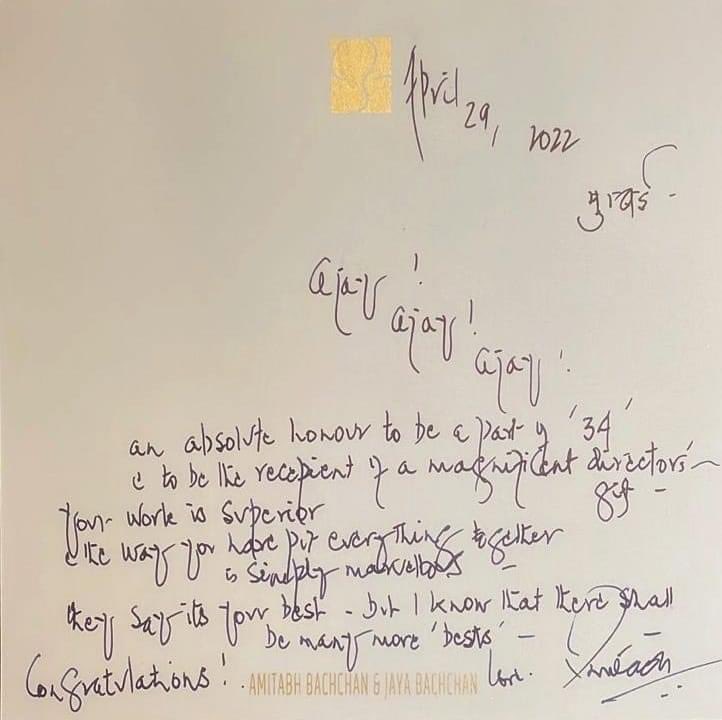 April 29, 2022
मुम्बई -
Ajay !
Ajay !
Ajay !
an absolute honour to be a part of '34'
& to be the recepient of a magnificent directors'
gift -
Your work is superior
& the way you have put everything together
is simply marvellous -
they say its your best - but I know that there shall
be many more 'bests' -
Congratulations !
AMITABH BACHCHAN & JAYA BACHCHAN